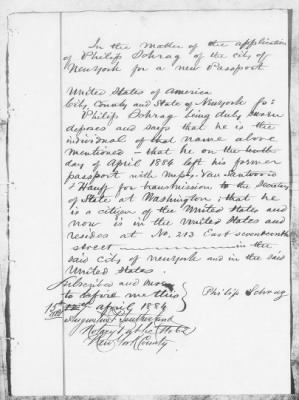 In the matter of the application
of Philip Schrag of the city of
New York for a new Passport
United States of America
City, County and State of New York ss:
Philip Schrag being duly sworn
deposes and says that he is the
individual of that name above
mentioned - that he on the tenth
day of April 1884 left his former
passport with Messrs. Van Santvoord
& Hauff for transmission to the Secretary
of State at Washington; that he
is a citizen of the United States and
now is in the United States and
resides at No. 213 East seventeenth
street in the
said city of New York and in the said
United States.
Subscribed and sworn
to before me this
15th April 1884
Philip Schrag
Notary Public
New York County